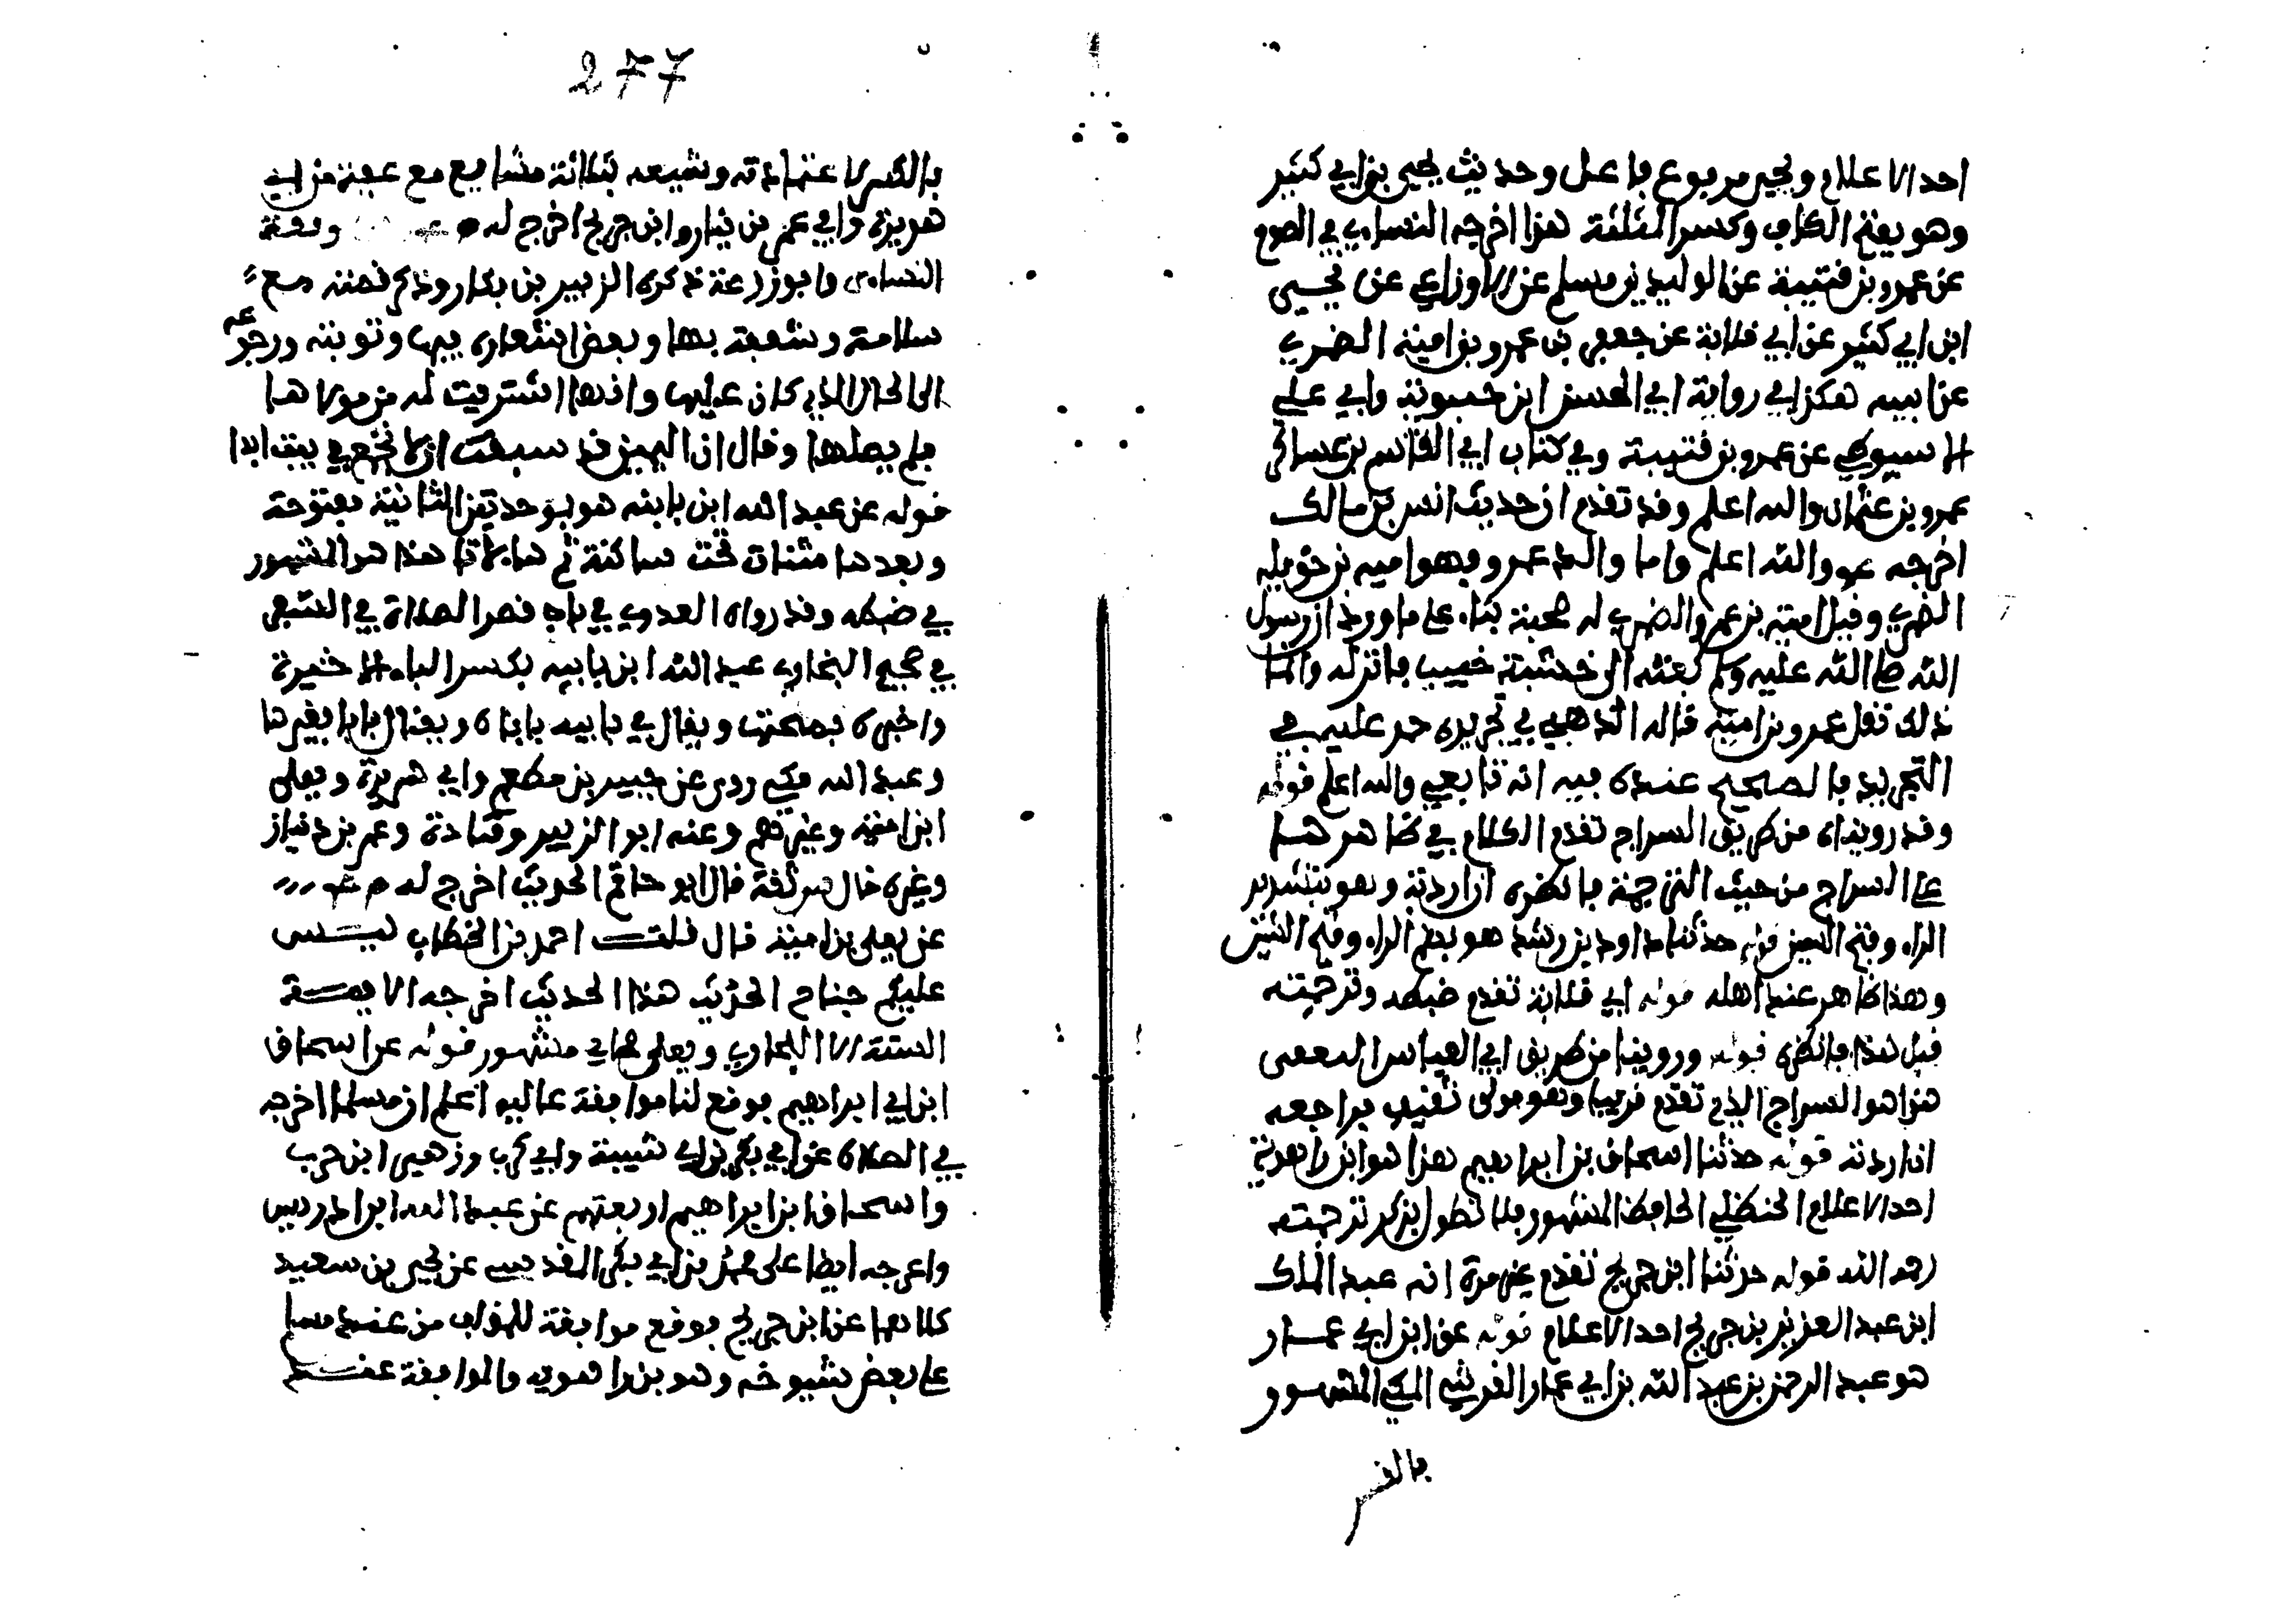 احد الاعلام ويحيى مرفوع فاعل وحديث يحيى بن ابي كثير
وهو بفتح الكاف وكسر المثلثة هذا اخرجه النساءي في الصوم
عن عمرو بن قتيبة عن الوليد بن مسلم عن الاوزاعي عن يحيى
ابن ابي كثير عن ابي قلابة عن جعفر بن عمرو بن امية الضمري
عن ابيه هكذا في رواية ابي الحسن ابن حيوية وابي علي
الاسيوطي عن عمرو بن قتيبة وفي كتاب ابي القاسم بن عساكر
عمرو بن عثمان والله اعلم وقد تقدم ان حديث انس بن مالك
اخرجه عو والله اعلم واما والد عمرو فهو امية بن خويلد
الضمري وقيل امية بن عمرو الضمري له صحبة بناء على ما ورد ان رسول
الله صلى الله عليه وسلم بعثه الى خشبة خبيب فانزله وانما
ذلك نقل عمرو بن امية قاله الذهبي في تجريده حمر عليه في
التجريد فالصحيح عنده فيه انه تابعي والله اعلم قوله
وقد رويناه من طريق السراج تقدم الكلام في ظاهر هذا
على السراج من حيث الترجمة فانظره ان اردته وهو بتشديد
الراء وفتح السين قوله حدثنا داود بن رشيد هو بضم الراء وفتح الشين
وهذا ظاهر عند اهله قوله ابي قلابة تقدم ضبطه وترجمته
قبل هذا فانظره قوله وروينا من طريق ابي العباس الثقفي
هذا هو السراج الذي تقدم قريبا وهو مولى ثقيف فراجعه
ان اردته قوله حدثنا اسحاق بن ابراهيم هذا هو ابن راهوية
احد الاعلام الحنظلي الحافظ المشهور فلا نطول بذكر ترجمته
رحمه الله قوله حدثنا ابن جريج تقدم غير مرة انه عبد الملك
ابن عبد العزيز بن جريج احد الاعلام قوله عن ابن ابي عمار
هو عبد الرحمن بن عبد الله بن ابي عمار القرشي المكي المشهور
بالقس
277
بالقس لاعتماد وشيعه بثلاثة مشايع مع عفة من ابي
هريرة وابي عمر بن دينار وابن جريج اخرج له م ووثقه
النساءي وابو زرعة ذكره الزبير بن بكار وذكر قصته مع
سلامة وشغفه بها وبعض اشعاره فيها وتوبته ورجوعه
الى الحال الذي كان عليها وانها اشتريت له من مولاها
فلم يصلها وقال ان اليمين قد سبقت ان لا نجتمع في بيت ابدا
قوله عن عبد الله ابن بابيه هو بموحدتين الثانية مفتوحة
وبعدها مثناة تحت ساكنة ثم هاء لا تاء هذا هو المشهور
في ضبطه وقد رواه العدوي في باب قصر الصلاة في السفر
في صحيح البخاري عبد الله ابن بابيه بكسر الباء الاخيرة
واخبره بصحتها ويقال في بابيه باباه ويقال بابا بغير ها
وعبد الله مكي روى عن جبير بن مطعم وابي هريرة ويعلى
ابن امية وغيرهم وعنه ابو الزبير وقتادة وعمر بن دينار
وغيره قال س ثقة قال ابو حاتم الحديث اخرج له م عو
عن يعلى بن امية قال قلت احمر بن الخطاب ليس
عليكم جناح الحديث هذا الحديث اخرجه الايمة
الستة الا البخاري ويعلى صحابي مشهور قوله عن اسحاق
ابن ابي ابراهيم فوقع لنا موافقة عاليه اعلم ان مسلما اخرجه
في الصلاة عن ابي بكر بن ابي شيبة وابي كرب وزهير ابن حرب
واسحاق ابن ابراهيم اربعتهم عن عبد الله ابن ادريس
واخرجه ايضا على محمد بن ابي بكر المقدسي عن يحيى بن سعيد
كلاهما عن ابن جريج فوقع موافقة للمؤلف من عند مسلم
على بعض شيوخه وهو بن راهويه والموافقة عند